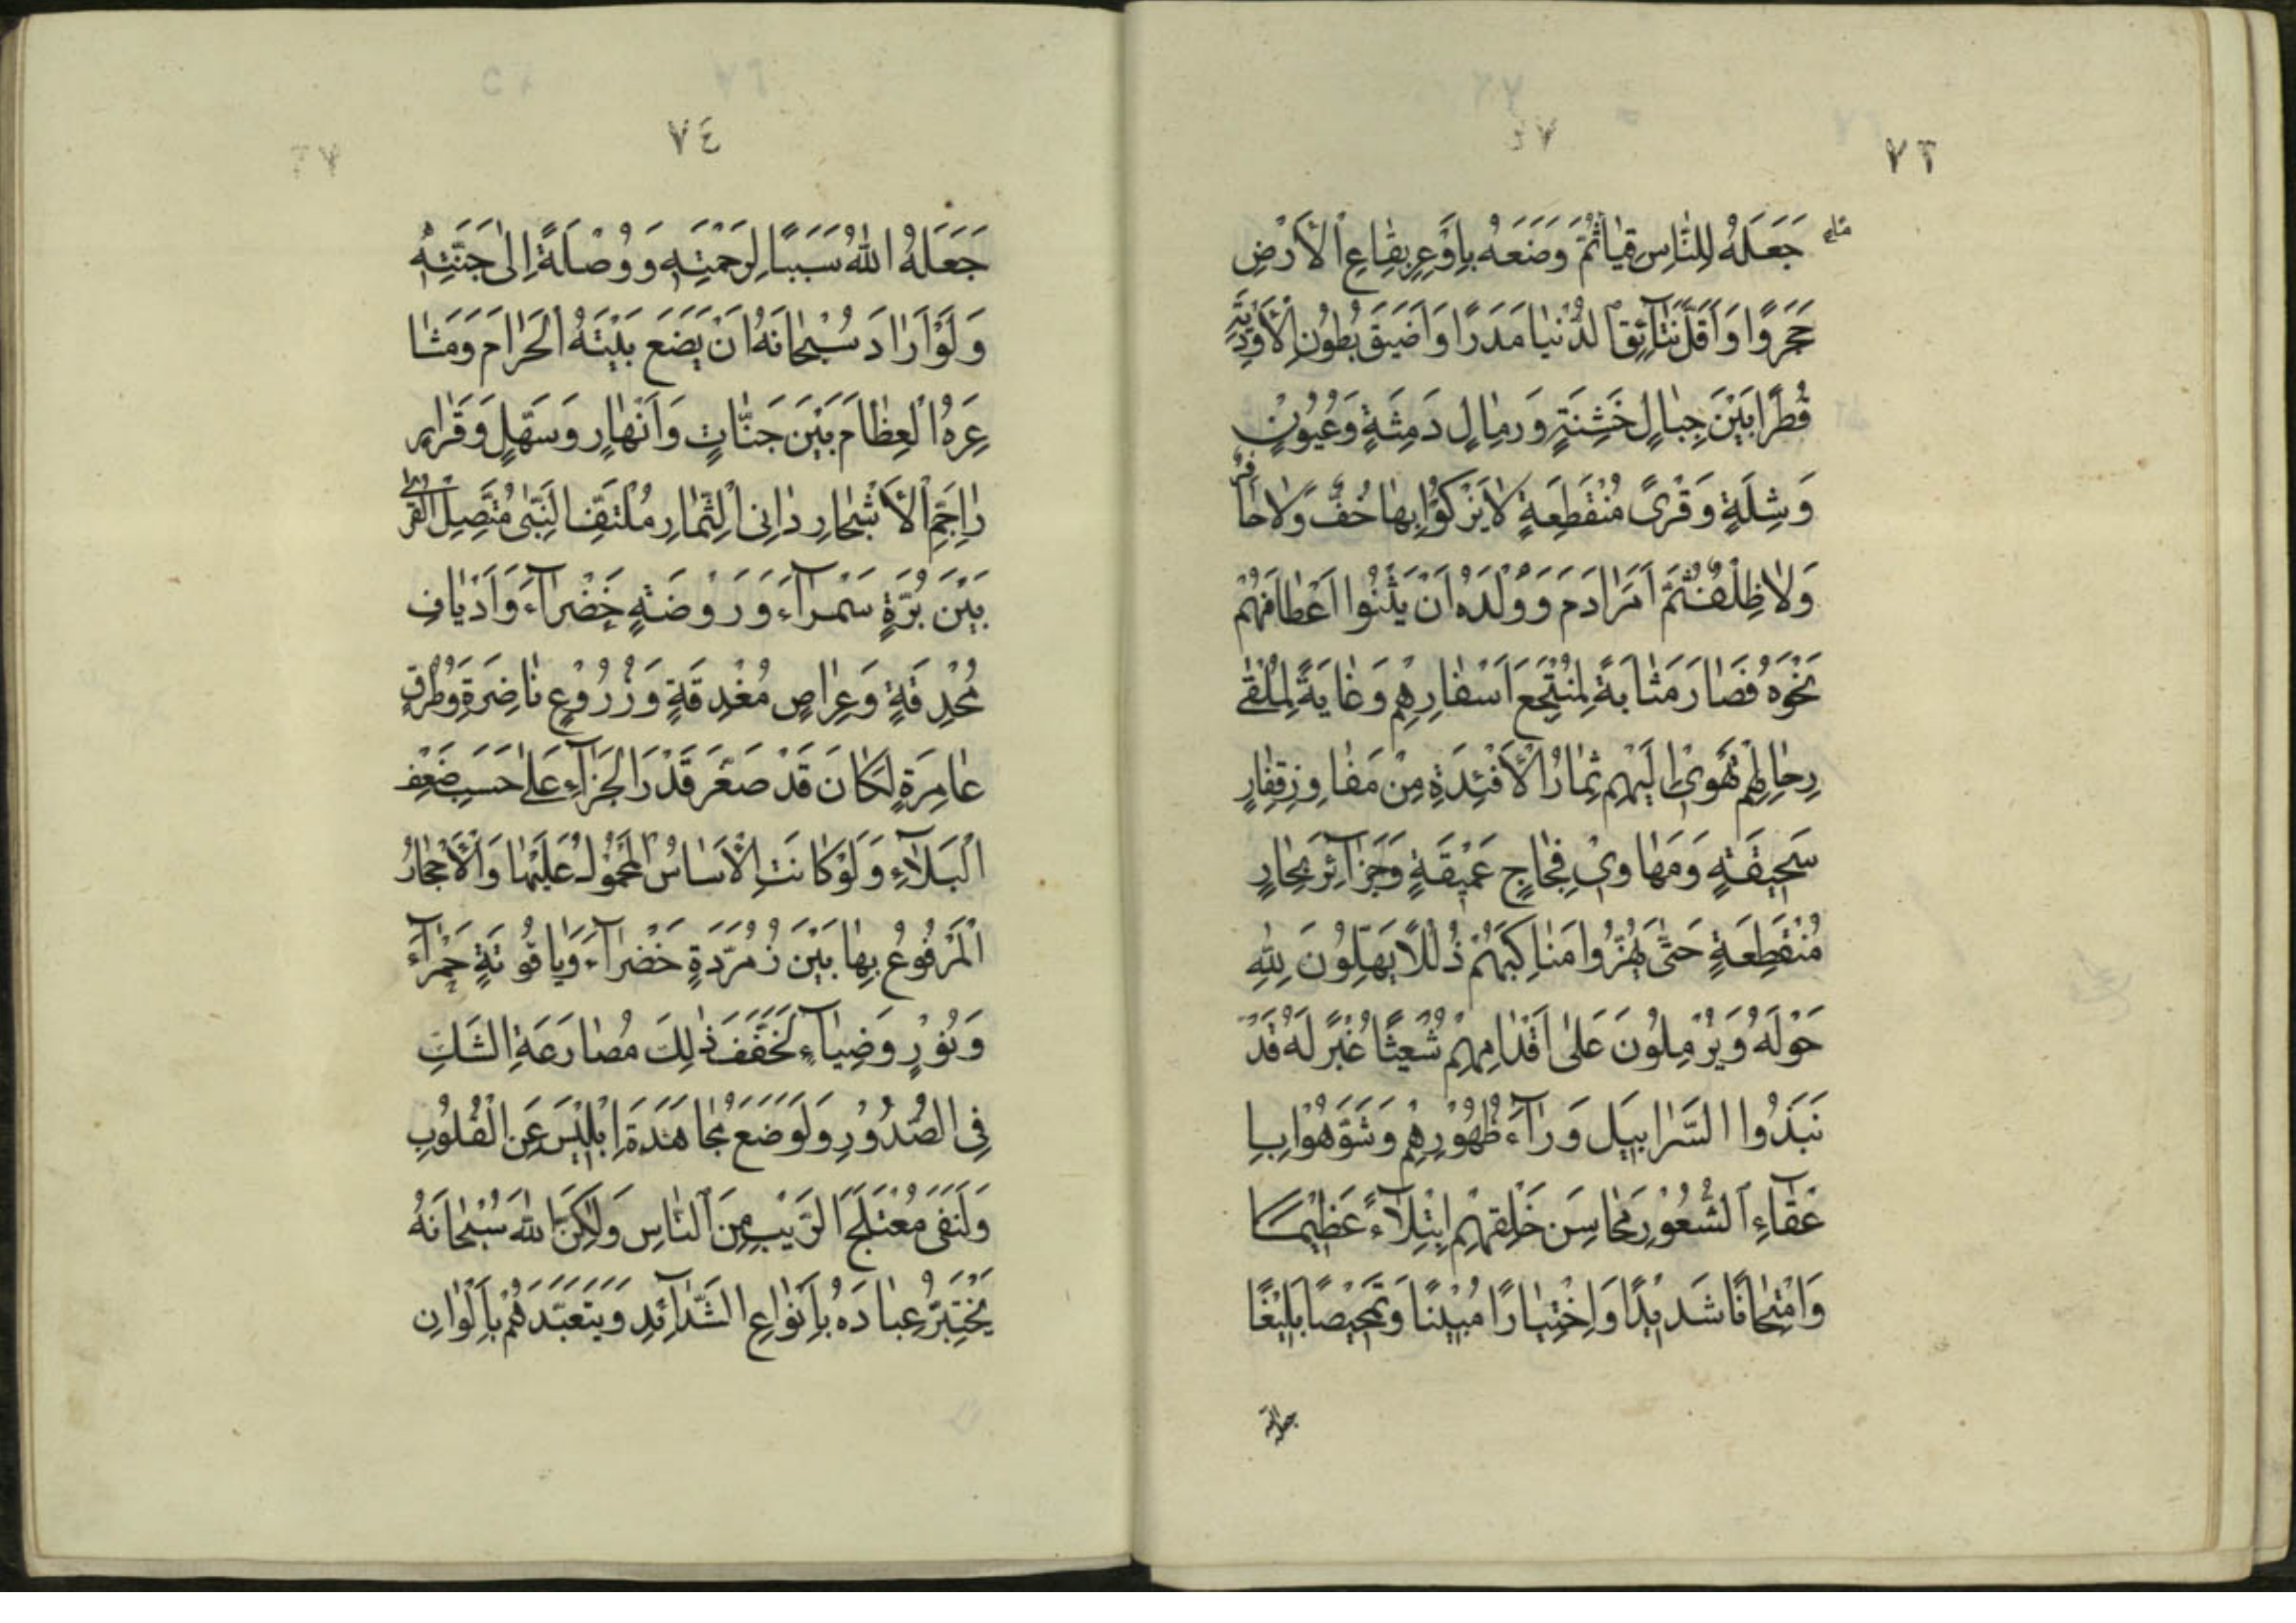 ٧٣
جَعَلَهُ لِلنَّاسِ قِيَامًا ثُمَّ وَضَعَهُ بِاَوْعَرِ بِقَاعِ الْاَرْضِ
حَجَرًا وَاَقَلِّ نَتَآئِقِ الدُّنْيَا مَدَرًا وَاَضْيَقِ بُطُونِ الْاَوْدِيَةِ
قُطْرًا بَيْنَ جِبَالٍ خَشِنَةٍ وَرِمَالٍ دَمِثَةٍ وَعُيُونٍ
وَشِلَةٍ وَقُرًى مُنْقَطِعَةٍ لَا يَزْكُوا بِهَا خُفٌّ وَلَا حَافِرٌ
وَلَا ظِلْفٌ ثُمَّ اَمَرَ ادَمَ وَوَلَدَهُ اَنْ يَثْنُوا اَعْطَافَهُمْ
نَحْوَهُ فَصَارَ مَثَابَةً لِمُنْتَجَعِ اَسْفَارِهِمْ وَغَايَةً لِمُلْقٰى
رِحَالِهِمْ تَهْوِي اِلَيْهِ ثِمَارُ الْاَفْئِدَةِ مِنْ مَفَاوِزِ قِفَارٍ
سَحِيقَةٍ وَمَهَاوِي فِجَاجٍ عَمِيقَةٍ وَجَزَآئِرِ بِحَارٍ
مُنْقَطِعَةٍ حَتّٰى يَهُزُّوا مَنَاكِبَهُمْ ذُلُلًا يُهَلِّلُونَ لِلّٰهِ
حَوْلَهُ وَيَرْمِلُونَ عَلٰى اَقْدَامِهِمْ شُعْثًا غُبْرًا لَهُ قَدْ
نَبَذُوا السَّرَابِيلَ وَرَآءَ ظُهُورِهِمْ وَشَوَّهُوا بِا
عْفَآءِ الشُّعُورِ مَحَاسِنَ خَلْقِهِمْ اِبْتِلَآءً عَظِيمًا
وَامْتِحَانًا شَدِيدًا وَاخْتِبَارًا مُبِينًا وَتَمْحِيصًا بَلِيغًا
جعله الله
٧٤
جَعَلَهُ اللّٰهُ سَبَبًا لِرَحْمَتِهِ وَوُصْلَةً اِلٰى جَنَّتِهِ
وَلَوْ اَرَادَ سُبْحَانَهُ اَنْ يَضَعَ بَيْتَهُ الْحَرَامَ وَمَشَا
عِرَهُ الْعِظَامَ بَيْنَ جَنَّاتٍ وَاَنْهَارٍ وَسَهْلٍ وَقَرَارٍ
جَمِّ الْاَشْجَارِ دَانِي الثِّمَارِ مُلْتَفِّ الْبُنٰى مُتَّصِلِ الْقُرٰى
بَيْنَ بُرَّةٍ سَمْرَآءَ وَرَوْضَةٍ خَضْرَآءَ وَاَرْيَافٍ
مُحْدِقَةٍ وَعِرَاصٍ مُغْدِقَةٍ وَزُرُوعٍ نَاضِرَةٍ وَطُرُقٍ
عَامِرَةٍ لَكَانَ قَدْ صَغُرَ قَدْرُ الْجَزَآءِ عَلٰى حَسَبِ ضَعْفِ
الْبَلَآءِ وَلَوْ كَانَتِ الْاَسَاسُ الْمَحْمُولُ عَلَيْهَا وَالْاَحْجَارُ
الْمَرْفُوعُ بِهَا بَيْنَ زُمُرُّدَةٍ خَضْرَآءَ وَيَاقُوتَةٍ حَمْرَآءَ
وَنُورٍ وَضِيَآءٍ لَخَفَّفَ ذٰلِكَ مُصَارَعَةَ الشَّكِّ
فِي الصُّدُورِ وَلَوَضَعَ مُجَاهَدَةَ اِبْلِيسَ عَنِ الْقُلُوبِ
وَلَنَفٰى مُعْتَلَجَ الرَّيْبِ مِنَ النَّاسِ وَلٰكِنَّ اللّٰهَ سُبْحَانَهُ
يَخْتَبِرُ عِبَادَهُ بِاَنْوَاعِ الشَّدَآئِدِ وَيَتَعَبَّدُهُمْ بِاَلْوَانِ